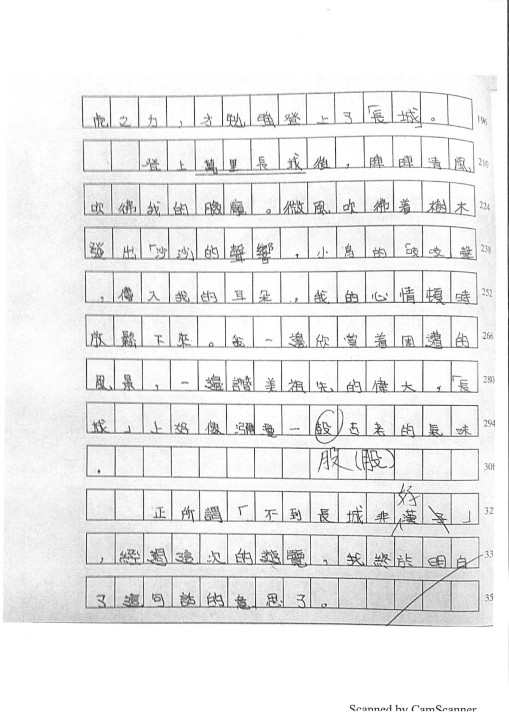 之力，才勉強登上了「長城」。 196
登上萬里長城後，陣陣清風 210
吹彿我的臉龐。微風吹彿着樹木 224
發出「沙沙」的聲響，小鳥的「吱吱聲 238
，傳入我的耳朵，我的心情頓時 252
放鬆下來。我一邊欣賞着周遭的 266
風景，一邊讚美祖先的偉大，「長 280
城」上好像瀰漫一股古老的氣味 294
股(股)
。 308
好
正所謂「不到長城非漢子」 32
，經過這次的遊覽，我終於明白 33
了這句話的意思了。 35
Scanned by CamScanner